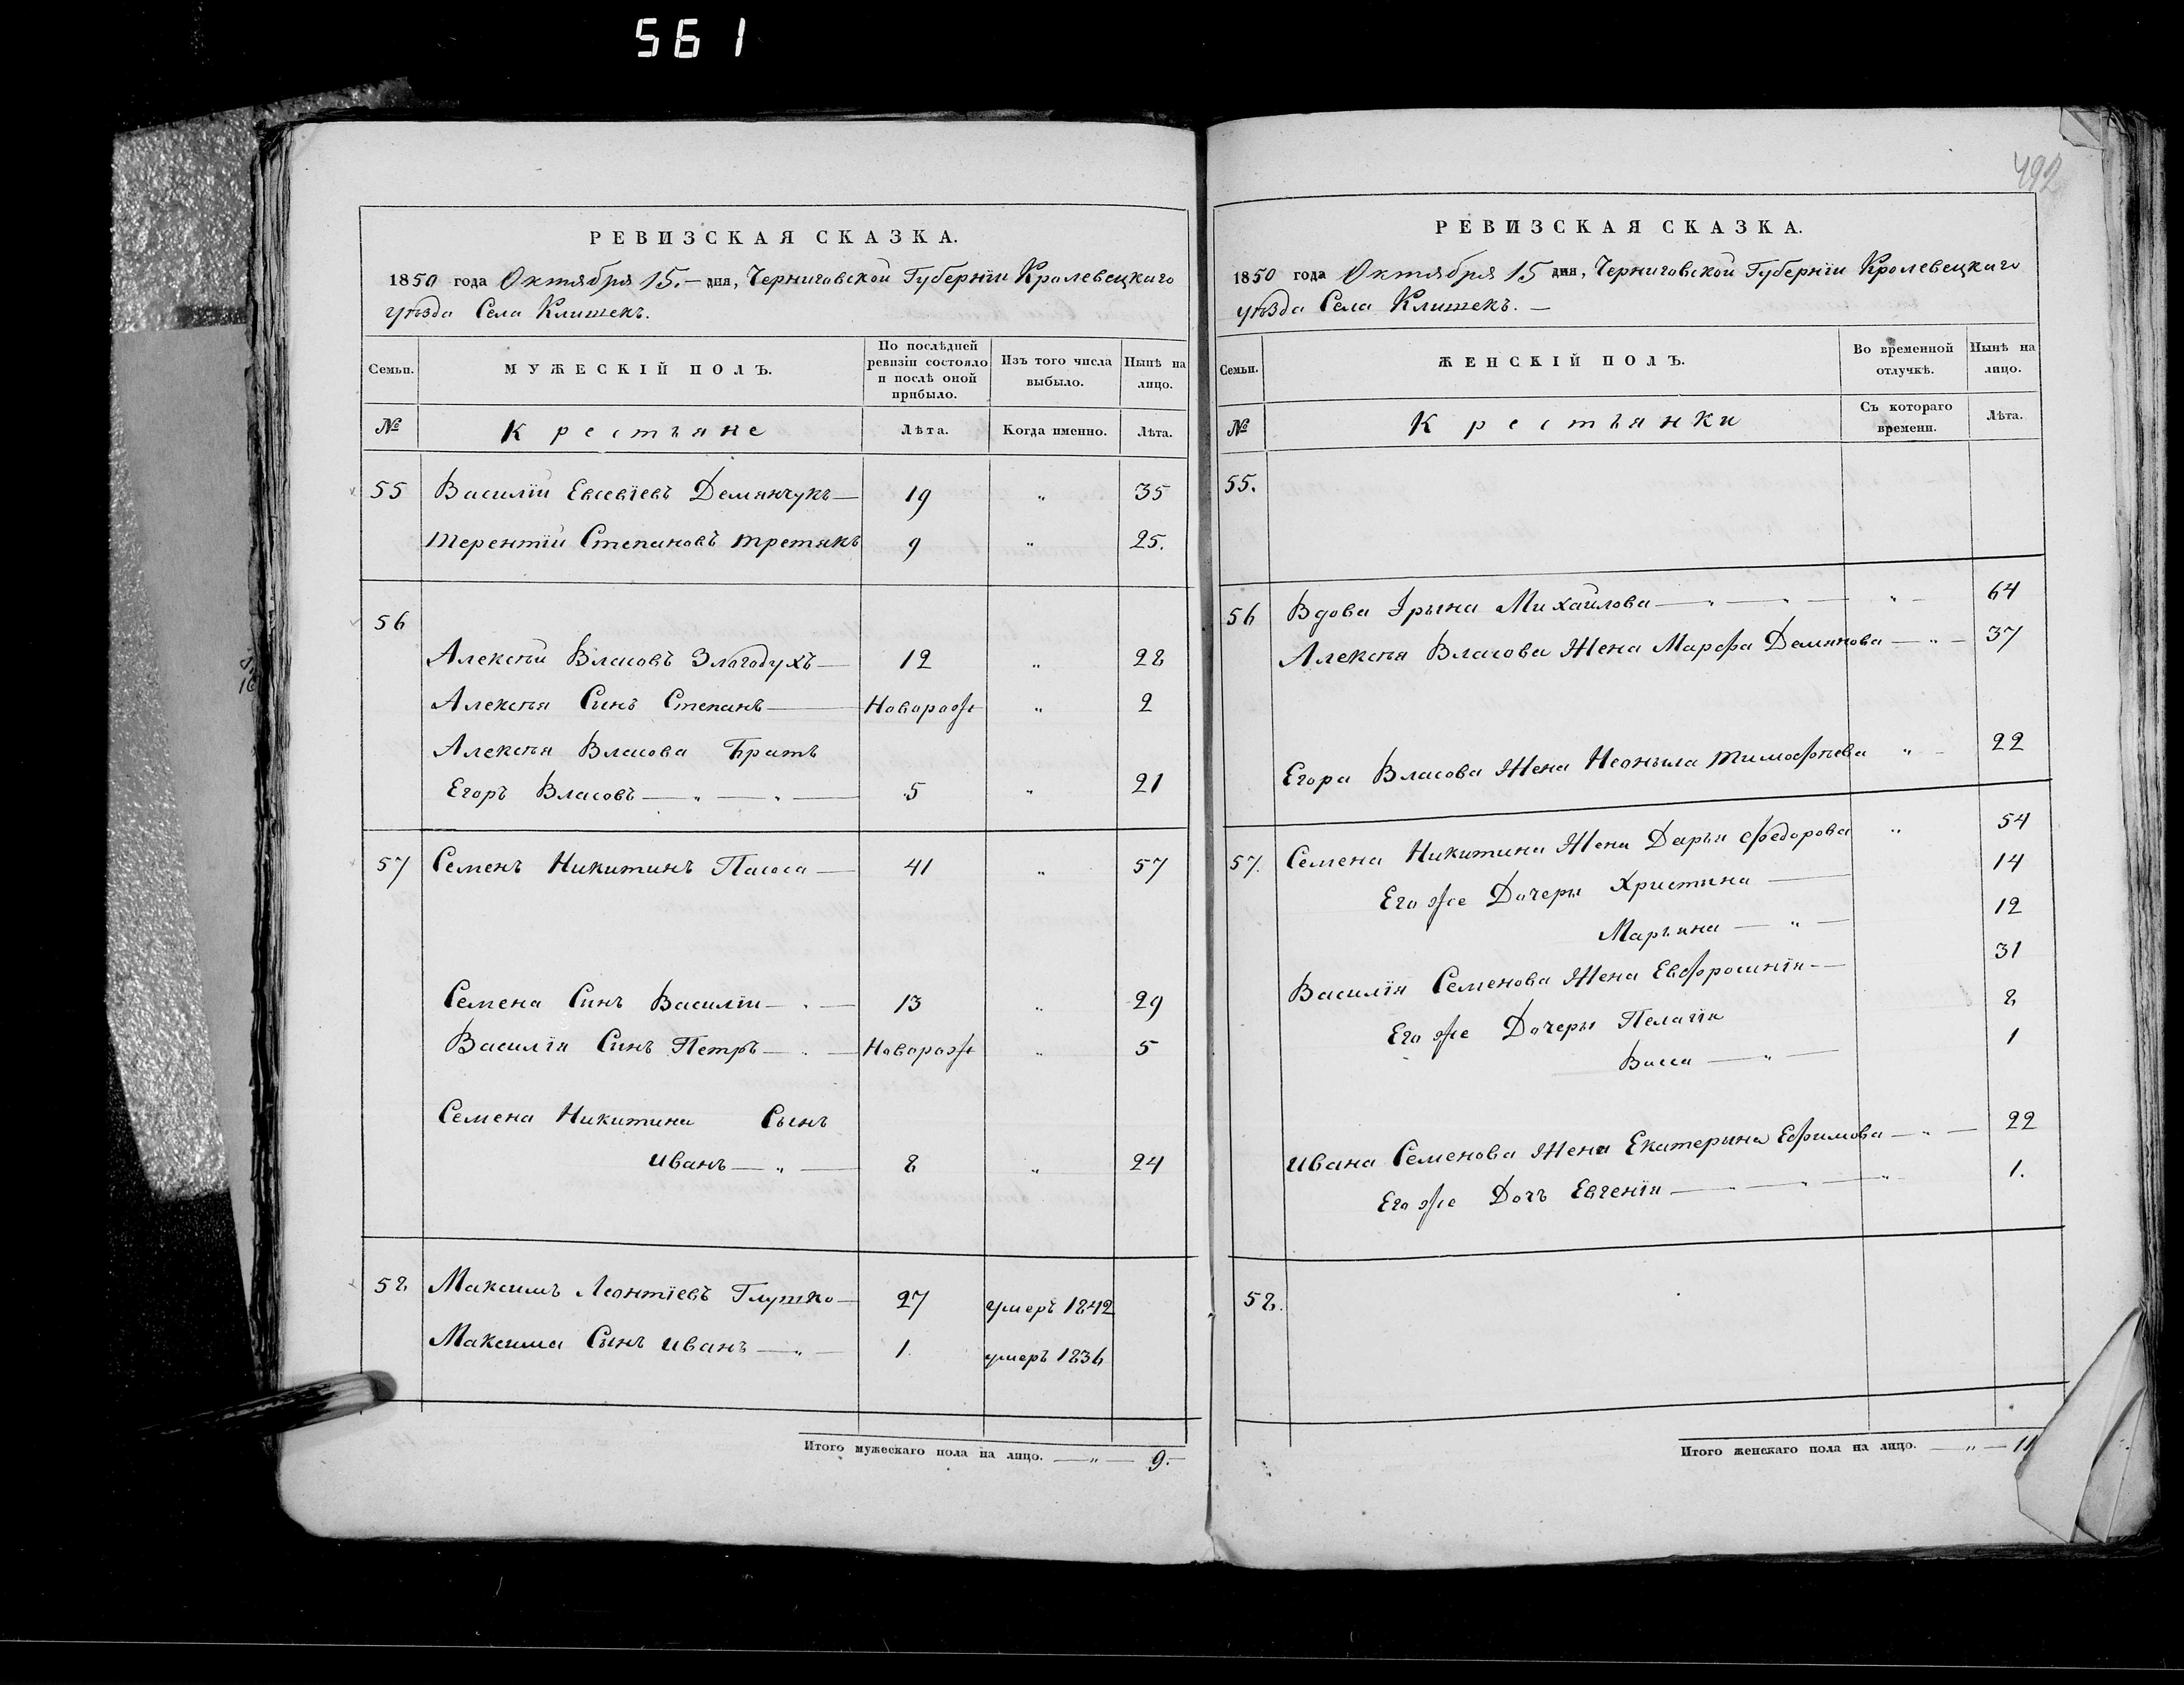 561
РЕВИЗСКАЯ СКАЗКА.
1850 года Октября 15.— дня, Черниговской Губерніи Кролевецкаго
уѣзда Села Клишекъ.
Семьи. МУЖЕСКІЙ ПОЛЪ. По послѣдней ревизіи состояло и послѣ оной прибыло. Изъ того числа выбыло. Нынѣ на лицо.
№ Крестьяне Лѣта. Когда именно. Лѣта.
55 Василій Евсевіевъ Демянчукъ — 19 „ 35
Терентій Степановъ Третякъ 9 „ 25.
56
Алексѣй Власовъ Злагодухъ — 12 „ 28
Алексѣя Синъ Степанъ — Наворож „ 2
Алексѣя Власова Братъ
Егоръ Власовъ — „ — „ — 5 „ 21
57 Семенъ Никитинъ Пасоса — 41 „ 57
Семена Синъ Василій — „ — 13 „ 29
Василія Синъ Петръ — „ — Наворож „ 5
Семена Никитина Сынъ
Иванъ — „ — 8 „ 24
58 Максимъ Леонтіевъ Глушко — 27 умеръ 1842
Максима Сынъ Иванъ — „ — 1. умеръ 1836
Итого мужескаго пола на лицо. — „ — 9.—
492
РЕВИЗСКАЯ СКАЗКА.
1850 года Октября 15 дня, Черниговской Губерніи Кролевецкаго
уѣзда Села Клишекъ. —
Семьи. ЖЕНСКІЙ ПОЛЪ. Во временной отлучкѣ. Нынѣ на лицо.
№ Крестьянки Съ котораго времени. Лѣта.
55.
56 Вдова Ірына Михайлова — „ — „ — „ — 64
Алексѣя Власова Жена Марфа Демянова — „ — 37
Егора Власова Жена Неоныла Тимофѣева „ — 22
57. Семена Никитина Жена Дарья Федорова „ 54
Его же Дочеры Христина — 14
Марьяна — „ — 12
Василія Семенова Жена Евфросинія — 31
Его же Дочеры Пелагія 8
Васса — „ — 1
Ивана Семенова Жена Екатерина Ефимова — „ — 22
Его же Дочъ Евгенія — „ — „ — „ 1.
58.
Итого женскаго пола на лицо. — „ — 11